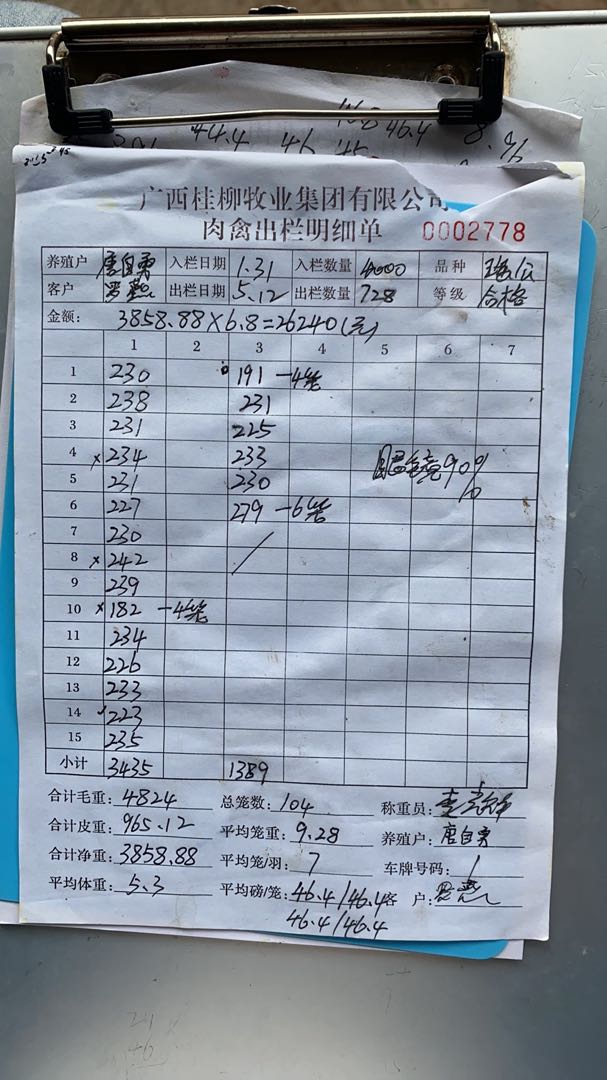 44.4 46 46.4
广西桂柳牧业集团有限公司
肉禽出栏明细单 0002778
养殖户 唐自勇 入栏日期 1.31 入栏数量 4000 品种
客户 出栏日期 5.12 出栏数量 728 等级 合格
金额: 3858.88×6.8=26240(元)
1 2 3 4 5 6 7
1 230 191 -4笼
2 238 231
3 231 225
4 ×234 233 90%
5 231 230
6 227 279 -6笼
7 230
8 ×242 /
9 239
10 ×182 -4笼
11 234
12 226
13 233
14 223
15 235
小计 3435 1389
合计毛重: 4824 总笼数: 104 称重员:
合计皮重: 965.12 平均笼重: 9.28 养殖户: 唐自勇
合计净重: 3858.88 平均笼/羽: 7 车牌号码: 1
平均体重: 5.3 平均磅/笼: 46.4/46.4 客 户:
46.4/46.4